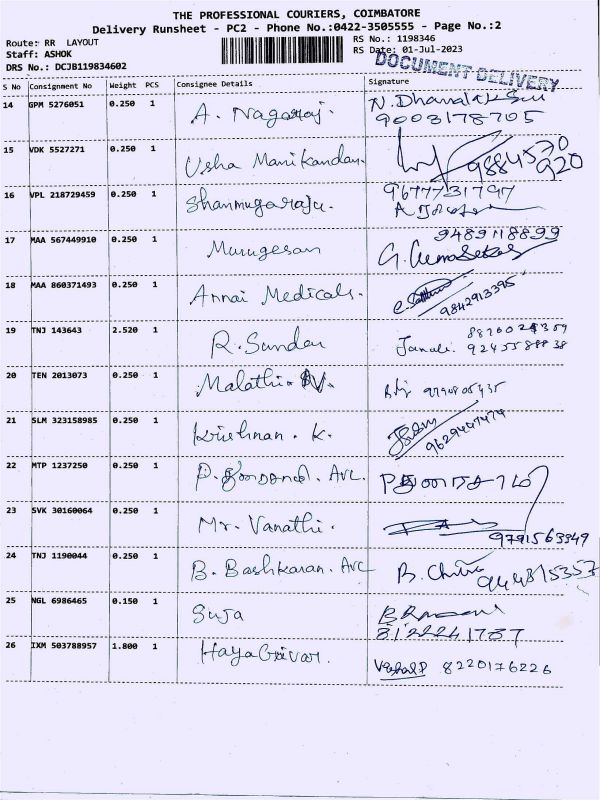 THE PROFESSIONAL COURIERS, COIMBATORE
Delivery Runsheet - PC2 - Phone No.:0422-3505555 - Page No.:2
Route: RR LAYOUT
RS No.: 1198346
Staff: ASHOK
RS Date: 01-Jul-2023
DRS No.: DCJB119834602
DOCUMENT DELIVERY
S No Consignment No Weight PCS Consignee Details Signature
14 GPM 5276051 0.250 1 A. Nagaraj.
9003178705
15 VDK 5527271 0.250 1 Usha Manikandan.
9884570
920
16 VPL 218729459 0.250 1 Shanmugaraju. 9677731797
17 MAA 567449910 0.250 1 Murugesan 9489118899
18 MAA 860371493 0.250 1 Annai Medicals.
9842913395
19 TNJ 143643 2.520 1 R. Sundar
Janaki.
20 TEN 2013073 0.250 1 Malathi.
21 SLM 323158985 0.250 1 Krishnan. K.
22 MTP 1237250 0.250 1
23 SVK 30160064 0.250 1 Mr. Vanathi.
9791563349
24 TNJ 1190044 0.250 1 B. Bashkaran. AVC B. Chitra
25 NGL 6986465 0.150 1 Suja
26 IXM 503788957 1.800 1 Hayagrivar.
8220176226